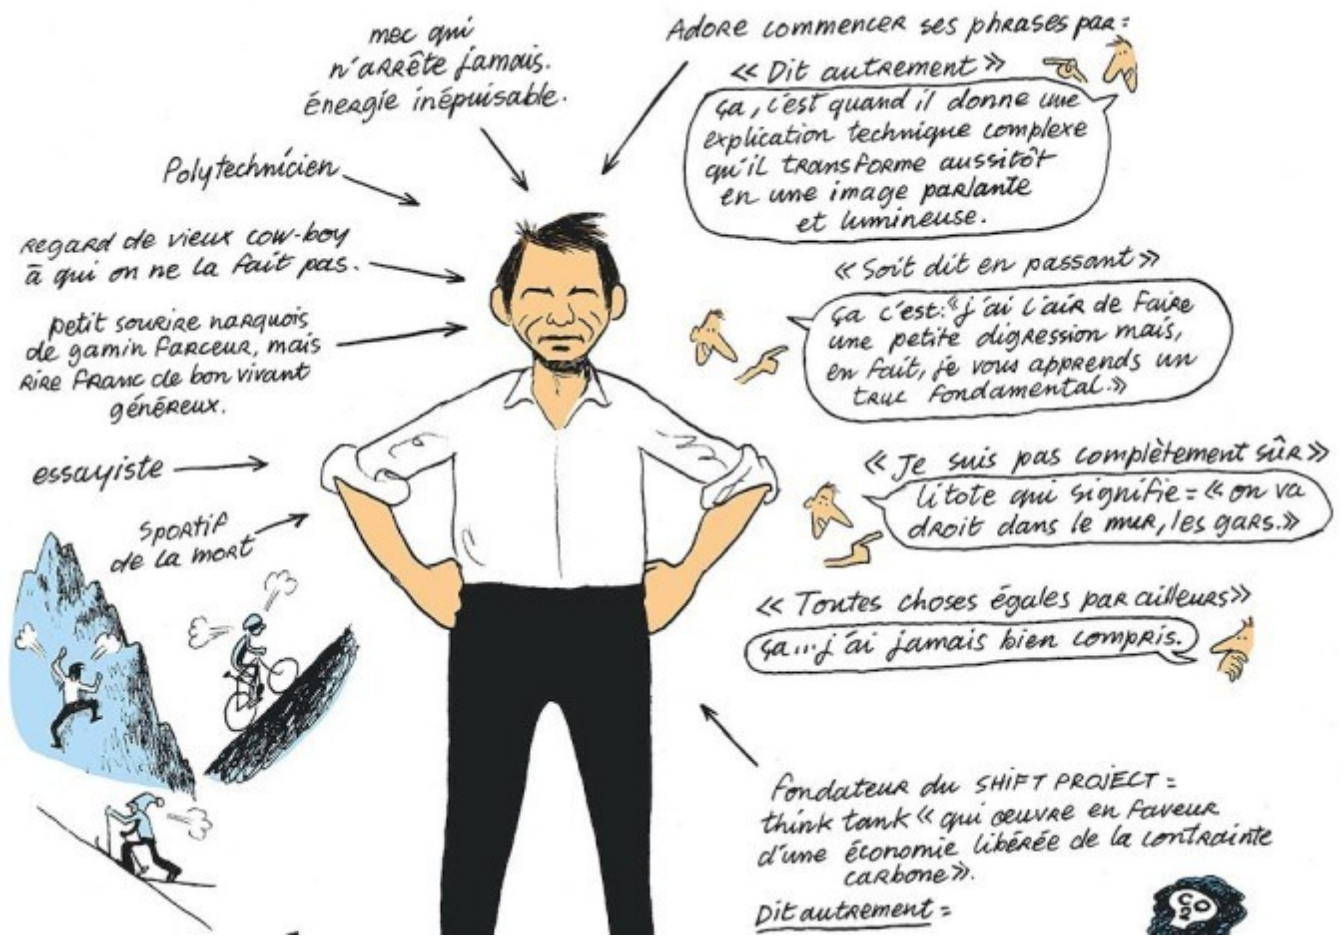 mec qui
n'arrête jamais.
énergie inépuisable.
Polytechnicien
regard de vieux cow-boy
à qui on ne la fait pas.
petit sourire narquois
de gamin farceur, mais
rire franc de bon vivant
généreux.
essayiste
sportif
de la mort
Adore commencer ses phrases par =
« Dit autrement »
ça, c'est quand il donne une
explication technique complexe
qu'il transforme aussitôt
en une image parlante
et lumineuse.
« Soit dit en passant »
ça c'est : « j'ai l'air de faire
une petite digression mais,
en fait, je vous apprends un
truc fondamental. »
« Je suis pas complètement sûr »
litote qui signifie = « on va
droit dans le mur, les gars. »
« Toutes choses égales par ailleurs »
ça... j'ai jamais bien compris.
fondateur du SHIFT PROJECT =
think tank « qui œuvre en faveur
d'une économie libérée de la contrainte
carbone ».
Dit autrement =
CO2